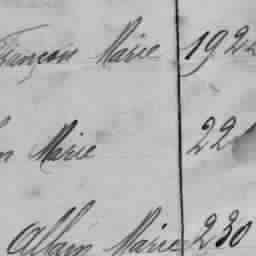 François Marie 192
Marie 22
Allain Marie 230